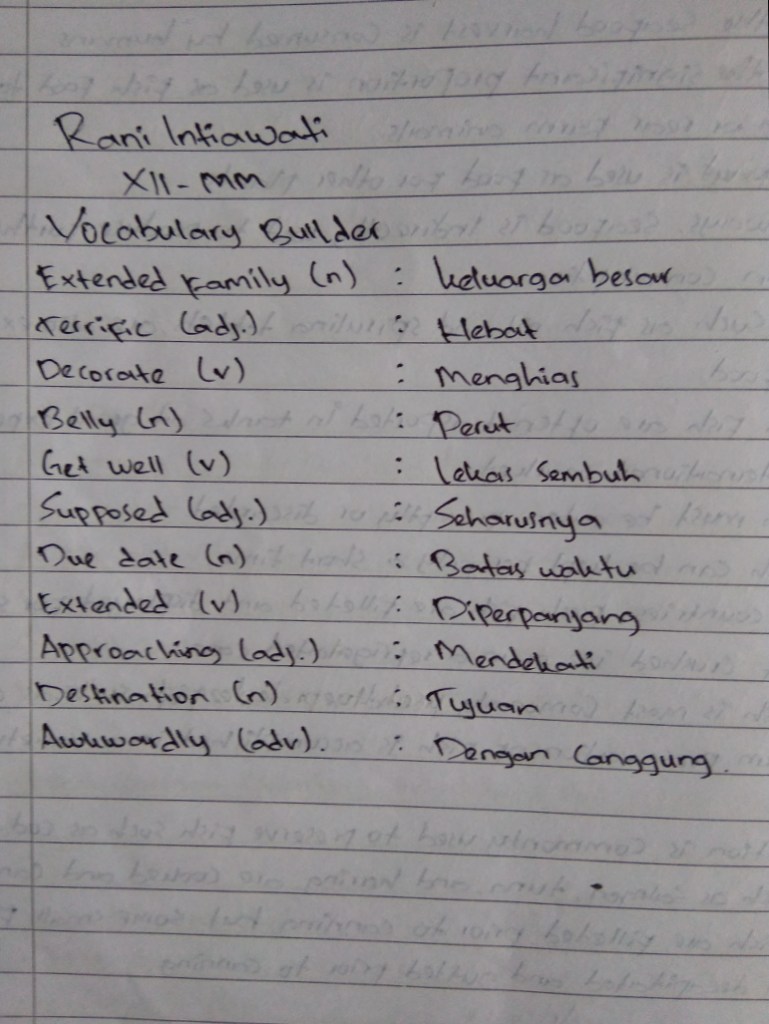 Rani Intiawati
XII-MM
Vocabulary Builder
Extended Family (n) : keluarga besar
Terrific (adj.) : Hebat
Decorate (v) : Menghias
Belly (n) : Perut
Get well (v) : Lekas Sembuh
Supposed (adj.) : Seharusnya
Due date (n) : Batas waktu
Extended (v) : Diperpanjang
Approaching (adj.) : Mendekati
Destination (n) : Tujuan
Awkwardly (adv). : Dengan Canggung.